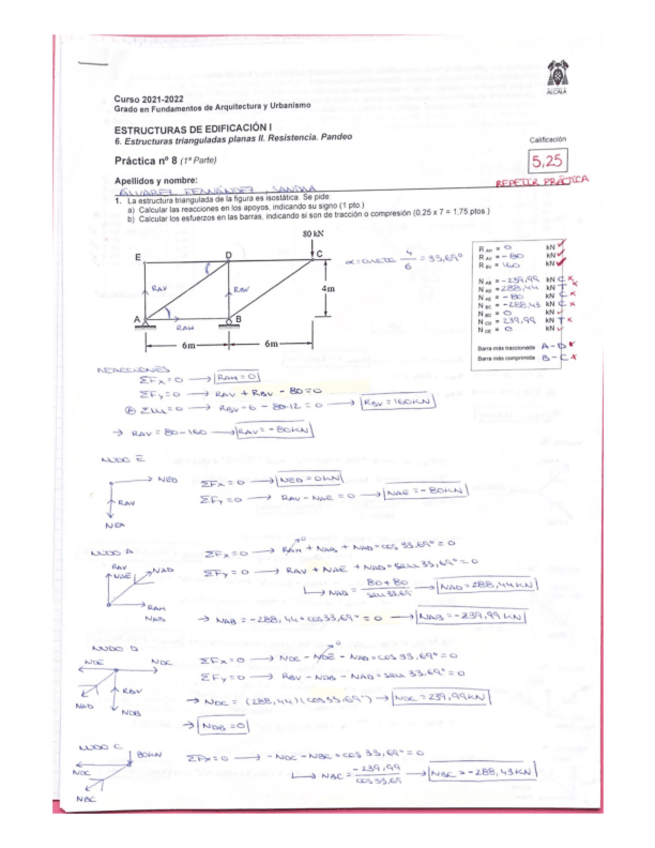 ALCALÁ
Curso 2021-2022
Grado en Fundamentos de Arquitectura y Urbanismo
ESTRUCTURAS DE EDIFICACIÓN I
6. Estructuras trianguladas planas II. Resistencia. Pandeo
Calificación
Práctica nº 8 (1ª Parte)
5,25
REPETIR PRÁCTICA
Apellidos y nombre:
ÁLVAREZ FERNÁNDEZ, SANDRA
1. La estructura triangulada de la figura es isostática. Se pide:
a) Calcular las reacciones en los apoyos, indicando su signo (1 pto.)
b) Calcular los esfuerzos en las barras, indicando si son de tracción o compresión (0,25 x 7 = 1,75 ptos.)
80 kN
E D C
α = 4/6 = 33,69º
RAV RBV 4m
A B
RAH
6m 6m
R AH = 0 kN ✓
R AV = -80 kN ✓
R BV = 160 kN ✓
N AB = -239,99 kN C x
N AD = 288,44 kN T x
N AE = -80 kN C x
N BC = -288,43 kN C x
N BD = 0 kN ✓
N CD = 239,99 kN T x
N DE = 0 kN ✓
Barra más traccionada A-D
Barra más comprimida B-C x
REACCIONES
ΣFx=0 → RAH=0
ΣFy=0 → RAV + RBV - 80=0
ΣMA=0 → RBV·6 - 80·12 = 0 → RBV=160KN
→ RAV=80-160 → RAV=-80KN
NUDO E
NED
RAV
NEA
ΣFx=0 → NED=0KN
ΣFy=0 → RAV-NAE=0 → NAE=-80KN
NUDO A
RAV
NAE NAD
RAH
NAB
ΣFx=0 → RAH + NAB + NAD·cos 33,69º=0
ΣFy=0 → RAV + NAE + NAD·sen 33,69º=0
NAD = 80+80 / sen 33,69 → NAD=288,44KN
→ NAB=-288,44·cos 33,69º=0 → NAB=-239,99KN
NUDO D
NDE NDC
RBV
NAD NDB
ΣFx=0 → NDC - NDE - NAD·cos 33,69º=0
ΣFy=0 → RBV - NDB - NAD·sen 33,69º=0
→ NDC = (288,44)(cos 33,69º) → NDC=239,99KN
→ NDB=0
NUDO C
80KN
NDC
NBC
ΣFx=0 → -NDC - NBC·cos 33,69º=0
NBC = -239,99 / cos 33,69 → NBC=-288,43KN